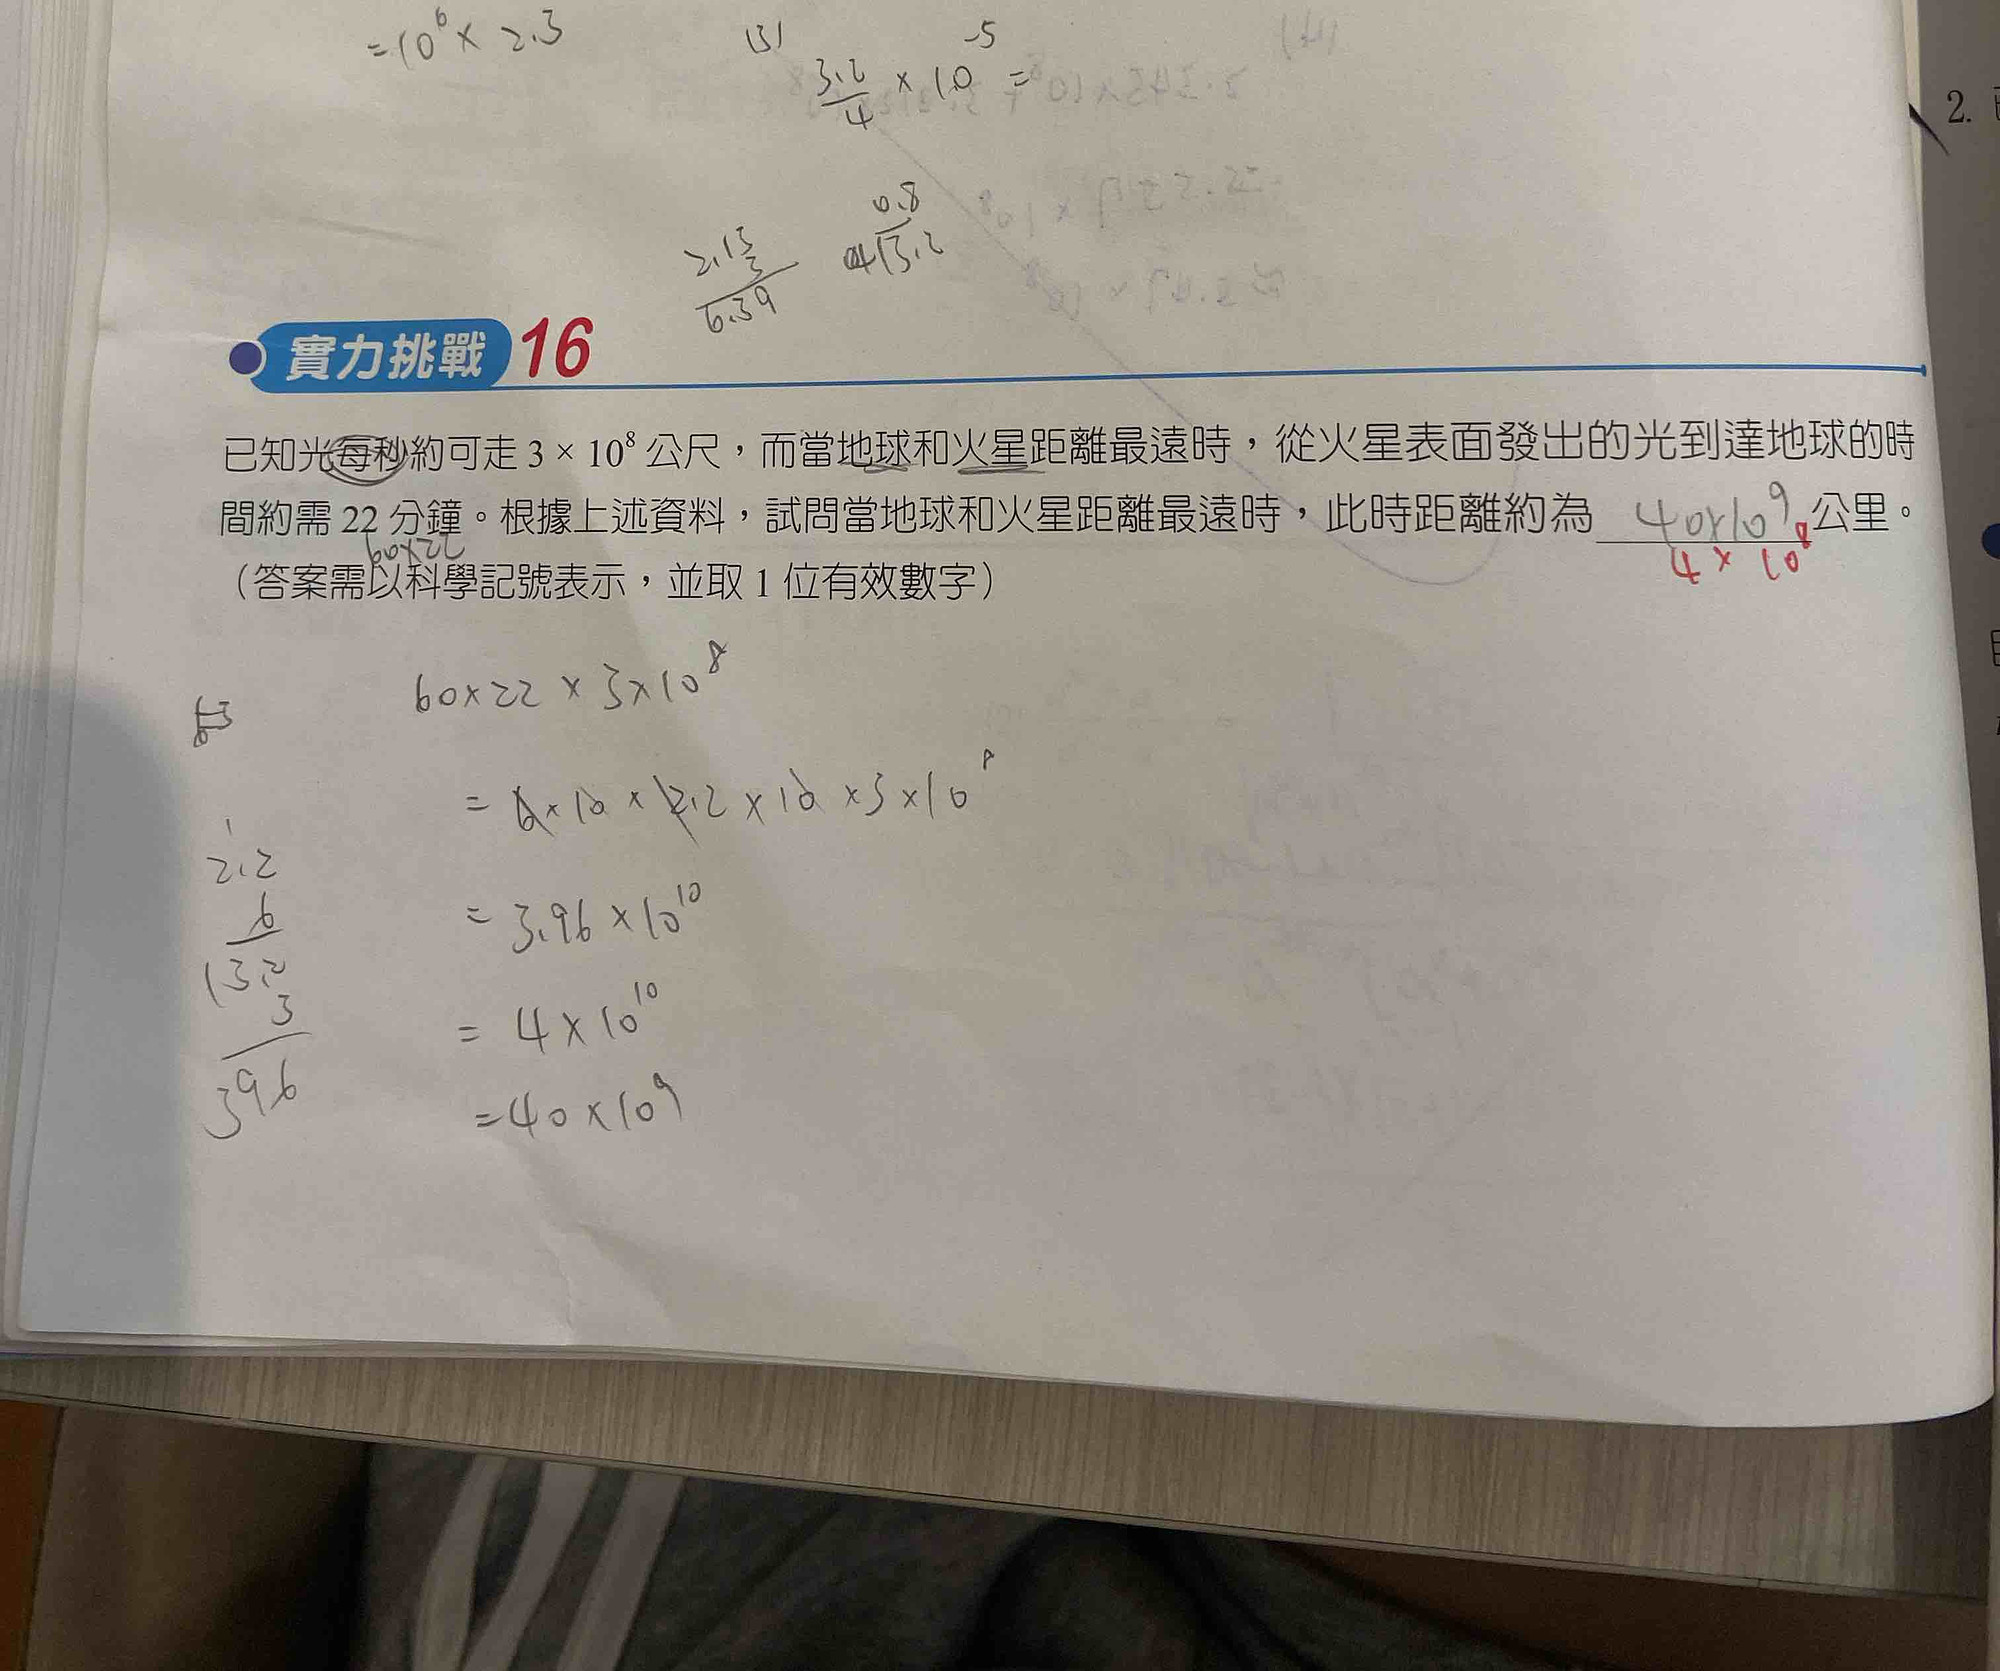 =10⁶× 2.3
(3)
3.2/4 × 10⁻⁵ =
2.13
3
6.39
0.8
4)3.2
實力挑戰 16
已知光每秒約可走 3 × 10⁸ 公尺，而當地球和火星距離最遠時，從火星表面發出的光到達地球的時
間約需 22 分鐘。根據上述資料，試問當地球和火星距離最遠時，此時距離約為 40×10⁹ 公里。
60×22
4 × 10⁸
（答案需以科學記號表示，並取 1 位有效數字）
60×22 × 3×10⁸
= 6×10 × 2.2 × 10 × 3 × 10⁸
= 3.96 × 10¹⁰
= 4 × 10¹⁰
=40 × 10⁹
1
2.2
6
13.2
3
396
2.